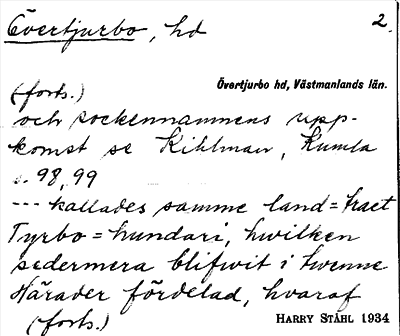 Övertjurbo, hd 2.
Övertjurbo hd, Västmanlands län.
(forts.)
och sockennamnens upp-
komst se Kihlman, Kumla
s. 98, 99
--- kallades samme land=traet
Tyrbo=hundari, hwilken
sedermera blifwit i twenne
Härader fördelad, hvaraf
(forts.)
HARRY STÅHL 1934